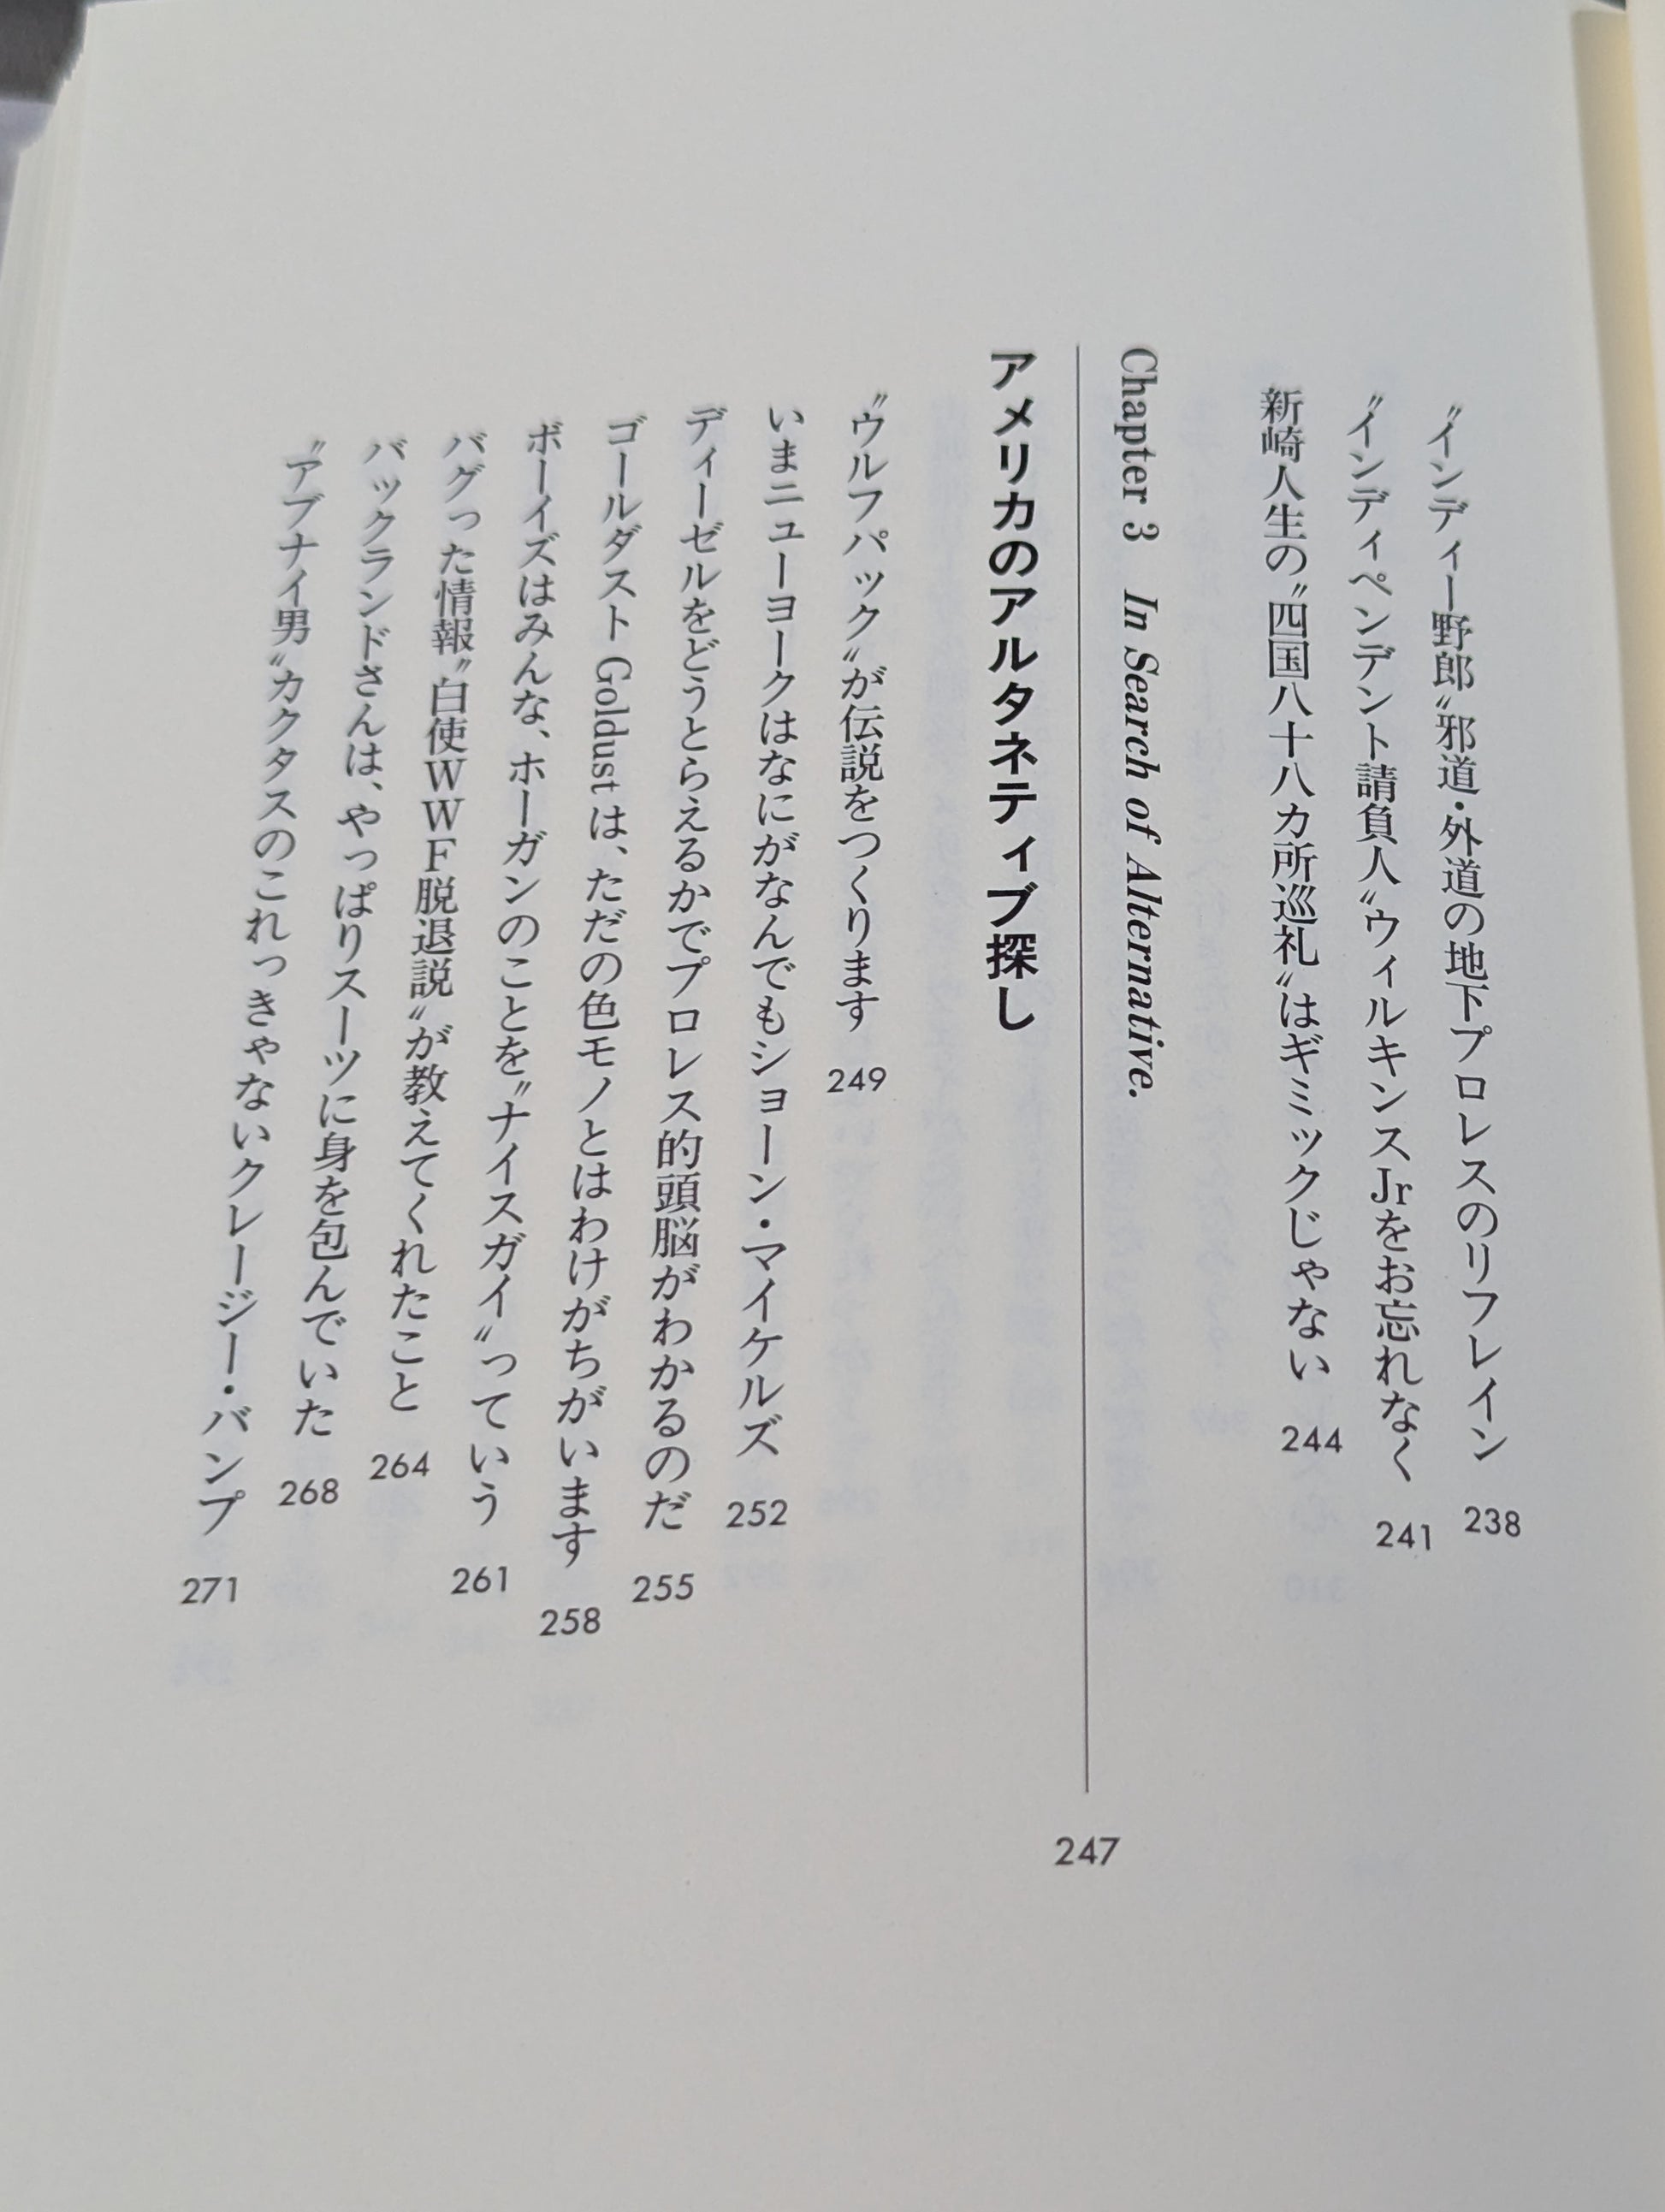 〝インディー野郎〟邪道・外道の地下プロレスのリフレイン 238
〝インディペンデント請負人〟ウィルキンスJrをお忘れなく 241
新崎人生の〝四国八十八カ所巡礼〟はギミックじゃない 244
Chapter 3 In Search of Alternative.
アメリカのアルタネティブ探し 247
〝ウルフパック〟が伝説をつくります 249
いまニューヨークはなにがなんでもショーン・マイケルズ 252
ディーゼルをどうとらえるかでプロレス的頭脳がわかるのだ 255
ゴールダスト Goldust は、ただの色モノとはわけがちがいます 258
ボーイズはみんな、ホーガンのことを〝ナイスガイ〟っていう 261
バグった情報〝白使WWF脱退説〟が教えてくれたこと 264
バックランドさんは、やっぱりスーツに身を包んでいた 268
〝アブナイ男〟カクタスのこれっきゃないクレージー・バンプ 271